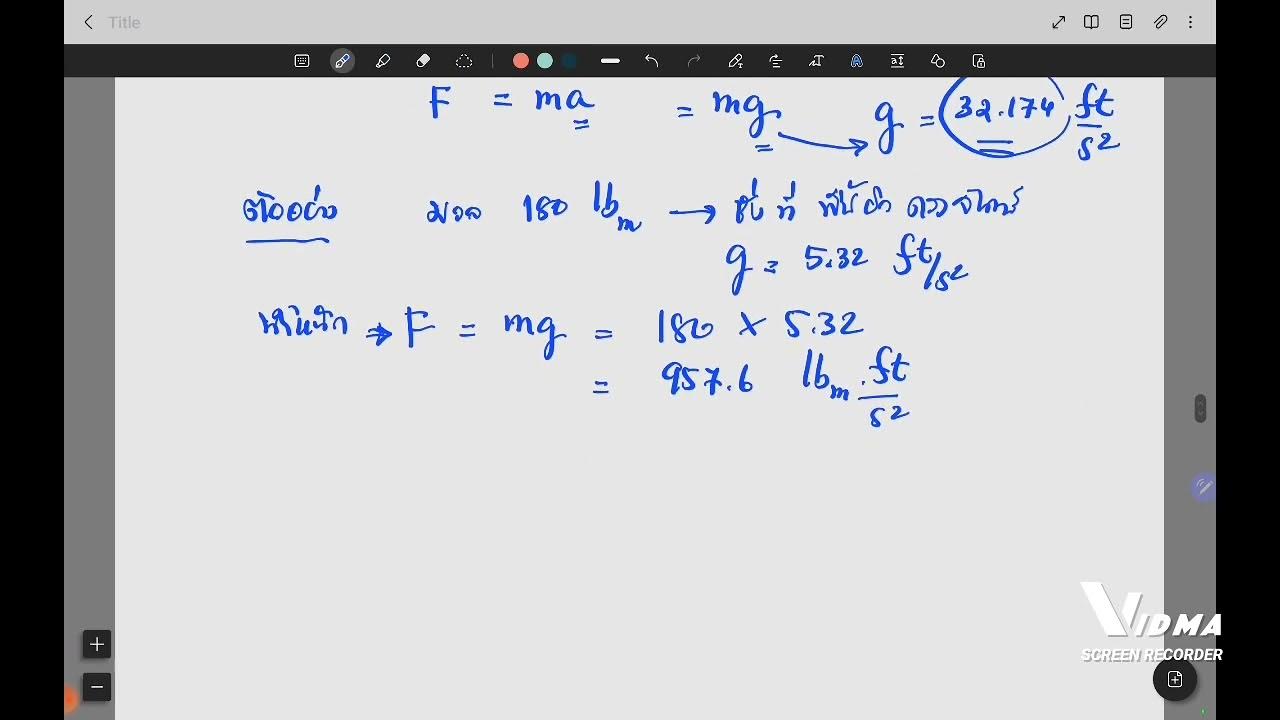 Title
F = ma = mg → g = 32.174 ft/s²
ตัวอย่าง มวล 180 lbm → ชั่งที่ พื้นผิว ดวงจันทร์
g = 5.32 ft/s²
น้ำหนัก → F = mg = 180 × 5.32
= 957.6 lbm . ft/s²
VIDMA
SCREEN RECORDER